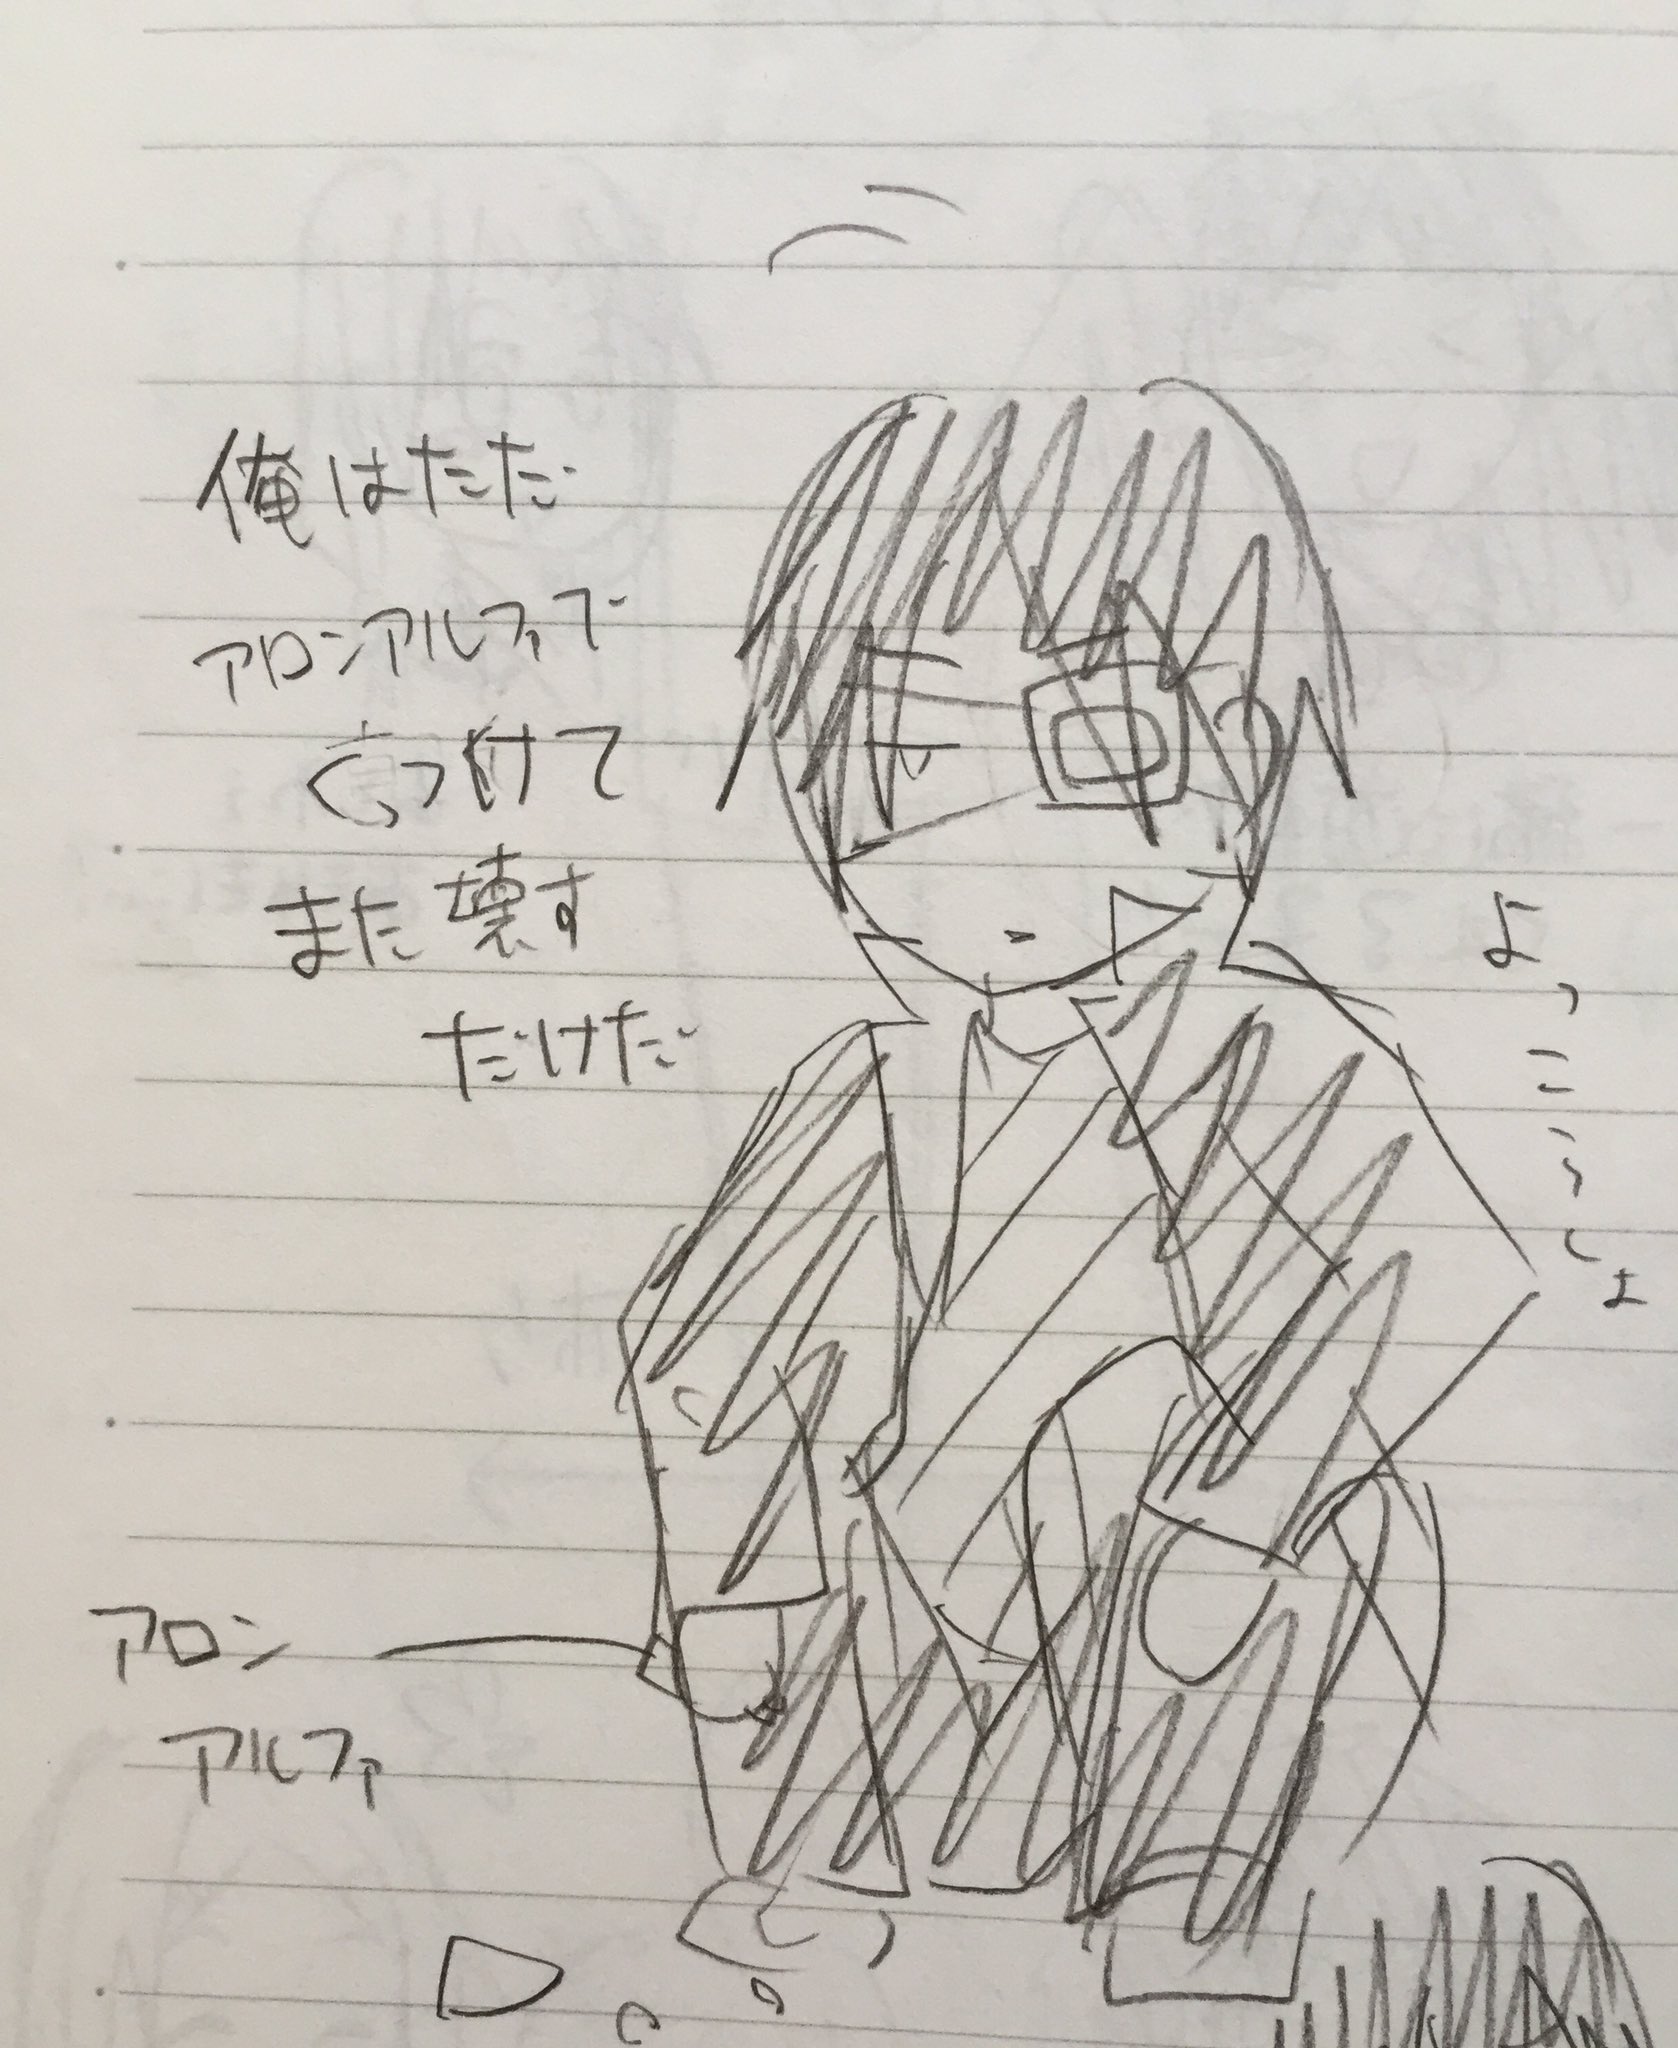 俺はただ
アロンアルファで
くっつけて
また壊す
だけだ
よっこらしょ
アロン
アルファ